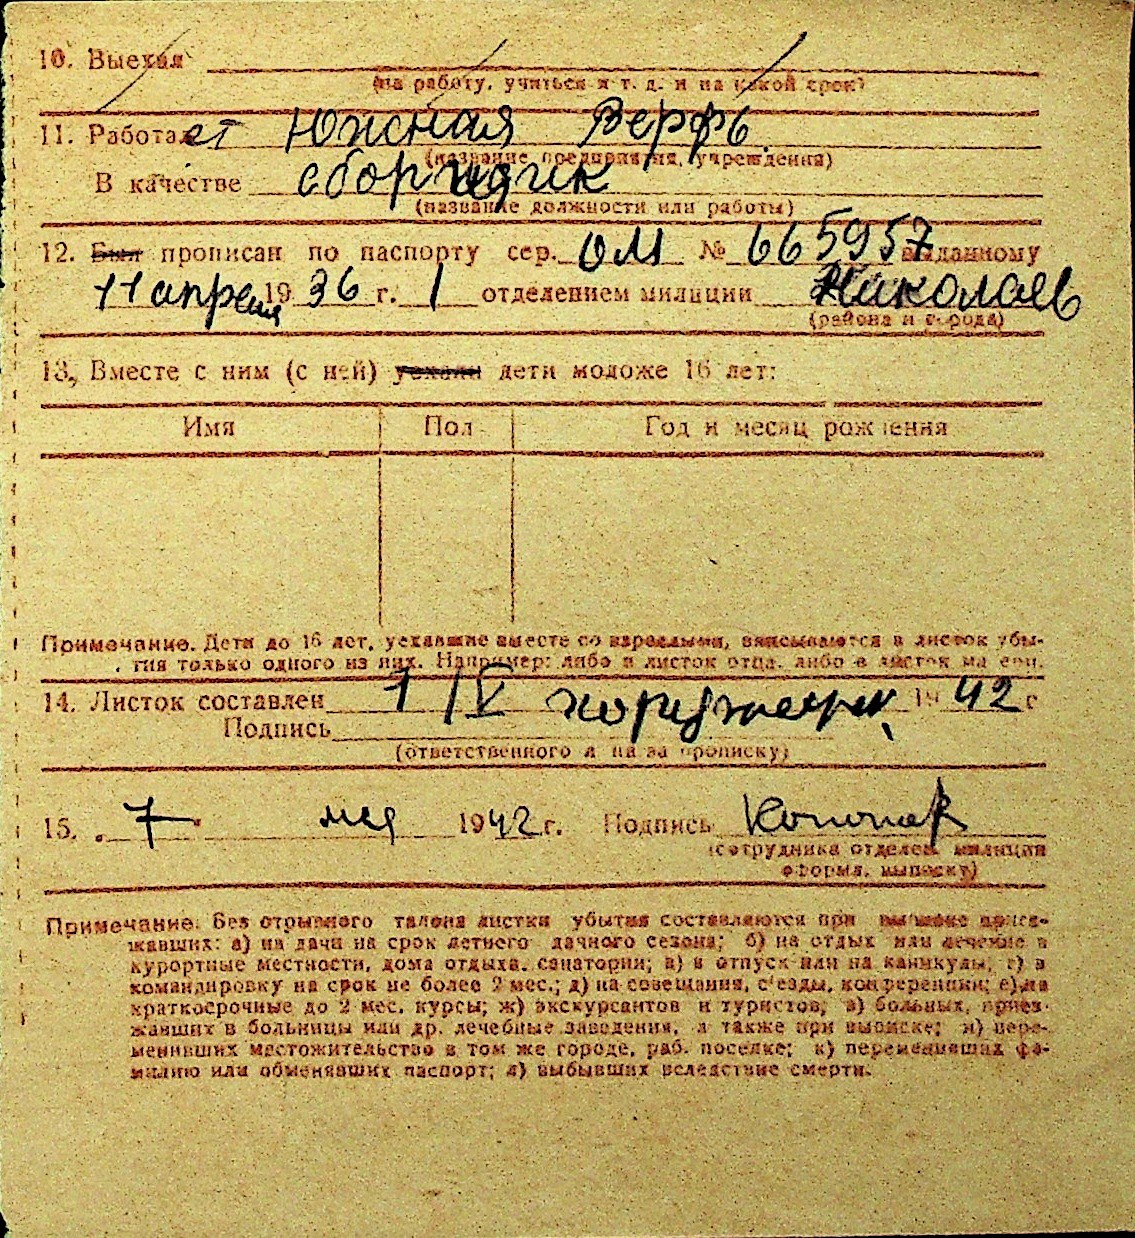 10. Выехал
(на работу, учиться и т. д. и на какой срок)
11. Работает Южная Верфь
(название предприятия, учреждения)
В качестве сборщик
(название должности или работы)
12. Был прописан по паспорту сер. ОМ № 665957 выданному
11 апреля 1936 г. 1 отделением милиции Николаев
(района и города)
13. Вместе с ним (с ней) уехали дети моложе 16 лет:
Имя Пол Год и месяц рождения
Примечание. Дети до 16 лет, уехавшие вместе со взрослыми, вписываются в листок убы-
тия только одного из них. Например: либо в листок отца, либо в листок матери.
14. Листок составлен 1/V 1942 г
Подпись
(ответственного лица за прописку)
15. „7" мая 1942 г. Подпись
(сотрудника отделен. милиции
оформл. выписку)
Примечание: Без отрывного талона листки убытия составляются при выписке приез-
жавших: а) на дачи на срок летнего дачного сезона; б) на отдых или лечение в
курортные местности, дома отдыха, санатории; в) в отпуск или на каникулы; г) в
командировку на срок не более 2 мес.; д) на совещания, с'езды, конференции; е) на
краткосрочные до 2 мес. курсы; ж) экскурсантов и туристов; з) больных, приез-
жавших в больницы или др. лечебные заведения, а также при выписке; и) пере-
менивших местожительство в том же городе, раб. поселке; к) переменивших фа-
милию или обменявших паспорт; л) выбывших вследствие смерти.